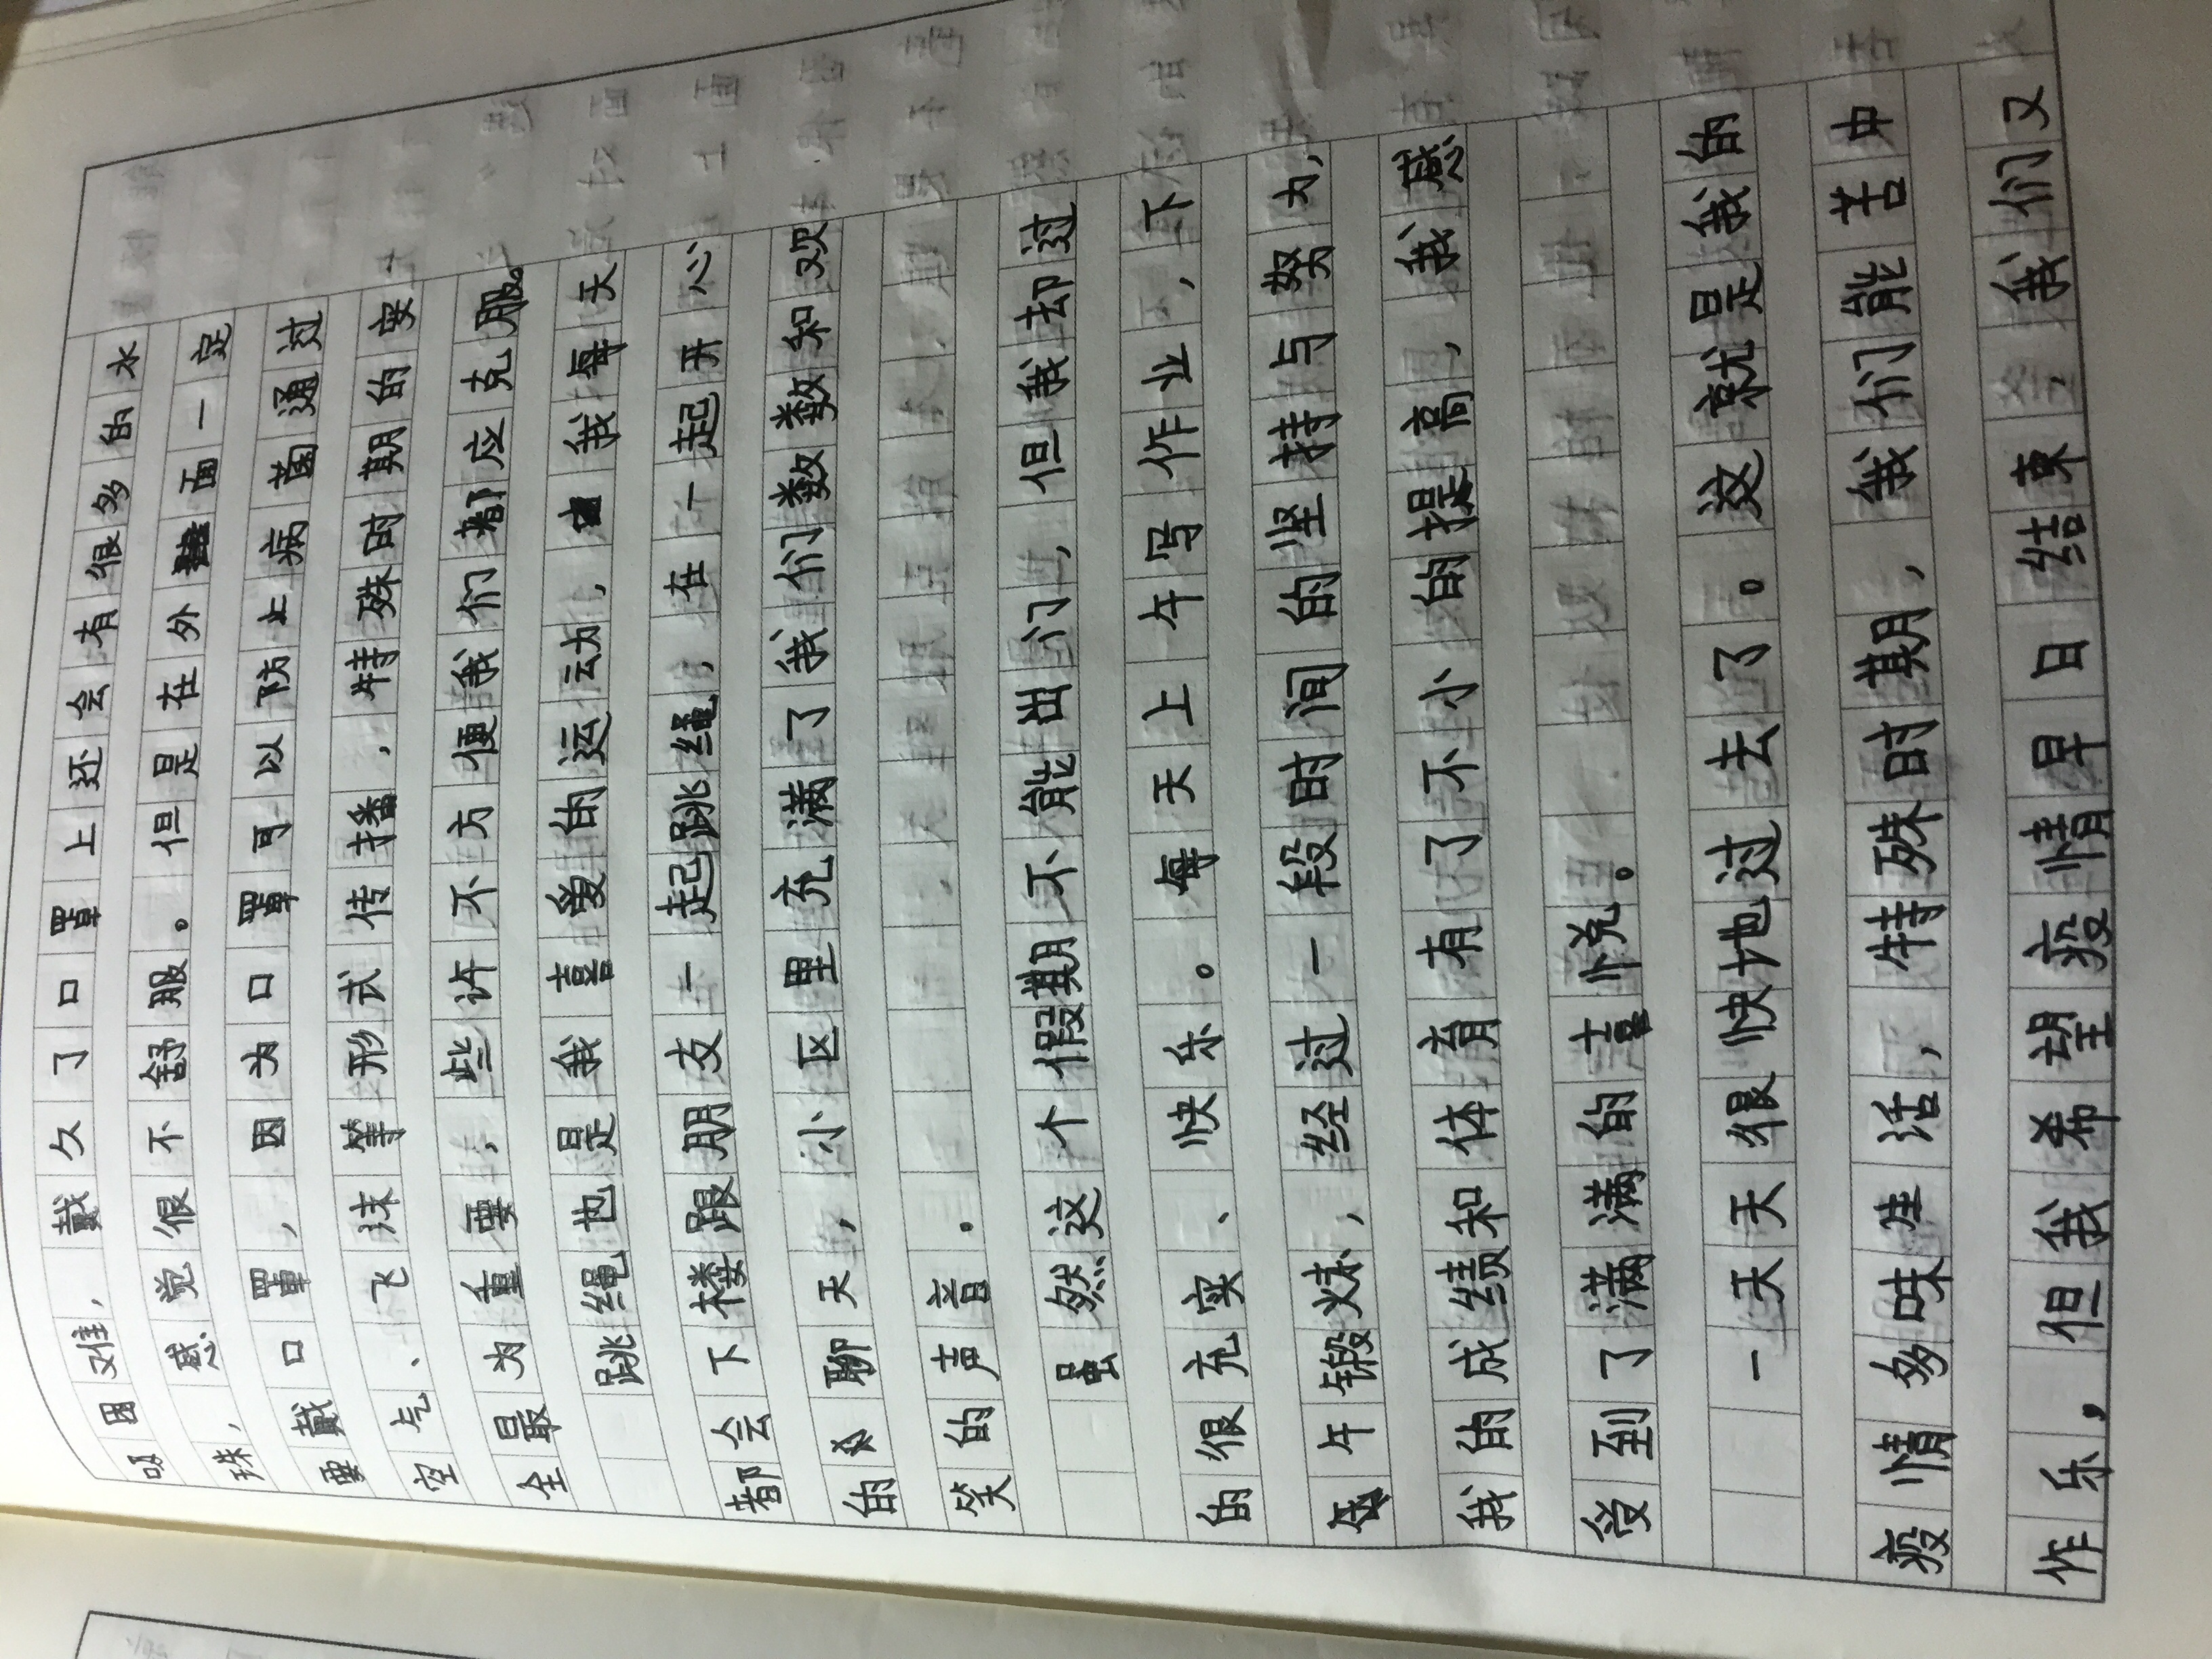 吸困难，戴久了口罩上还会有很多的水
珠，感觉很不舒服。但是在外面一定
要戴口罩，因为口罩可以防止病菌通过
空气、飞沫等形式传播，特殊时期的安
全最为重要，些许不方便我们都应克服。
跳绳也是我喜爱的运动，我每天
都会下楼跟朋友一起跳绳，在一起开心
的聊天，小区里充满了我们数数和欢
笑的声音。
虽然这个假期不能出门，但我却过
的很充实、快乐。每天上午写作业，下
午锻炼，经过一段时间的坚持与努力，
我的成绩和体育有了不小的提高，我感
受到了满满的喜悦。
一天天很快地过去了。这就是我的
疫情多味生活，特殊时期，我们能苦中
作乐，但我希望疫情早日结束，我们又